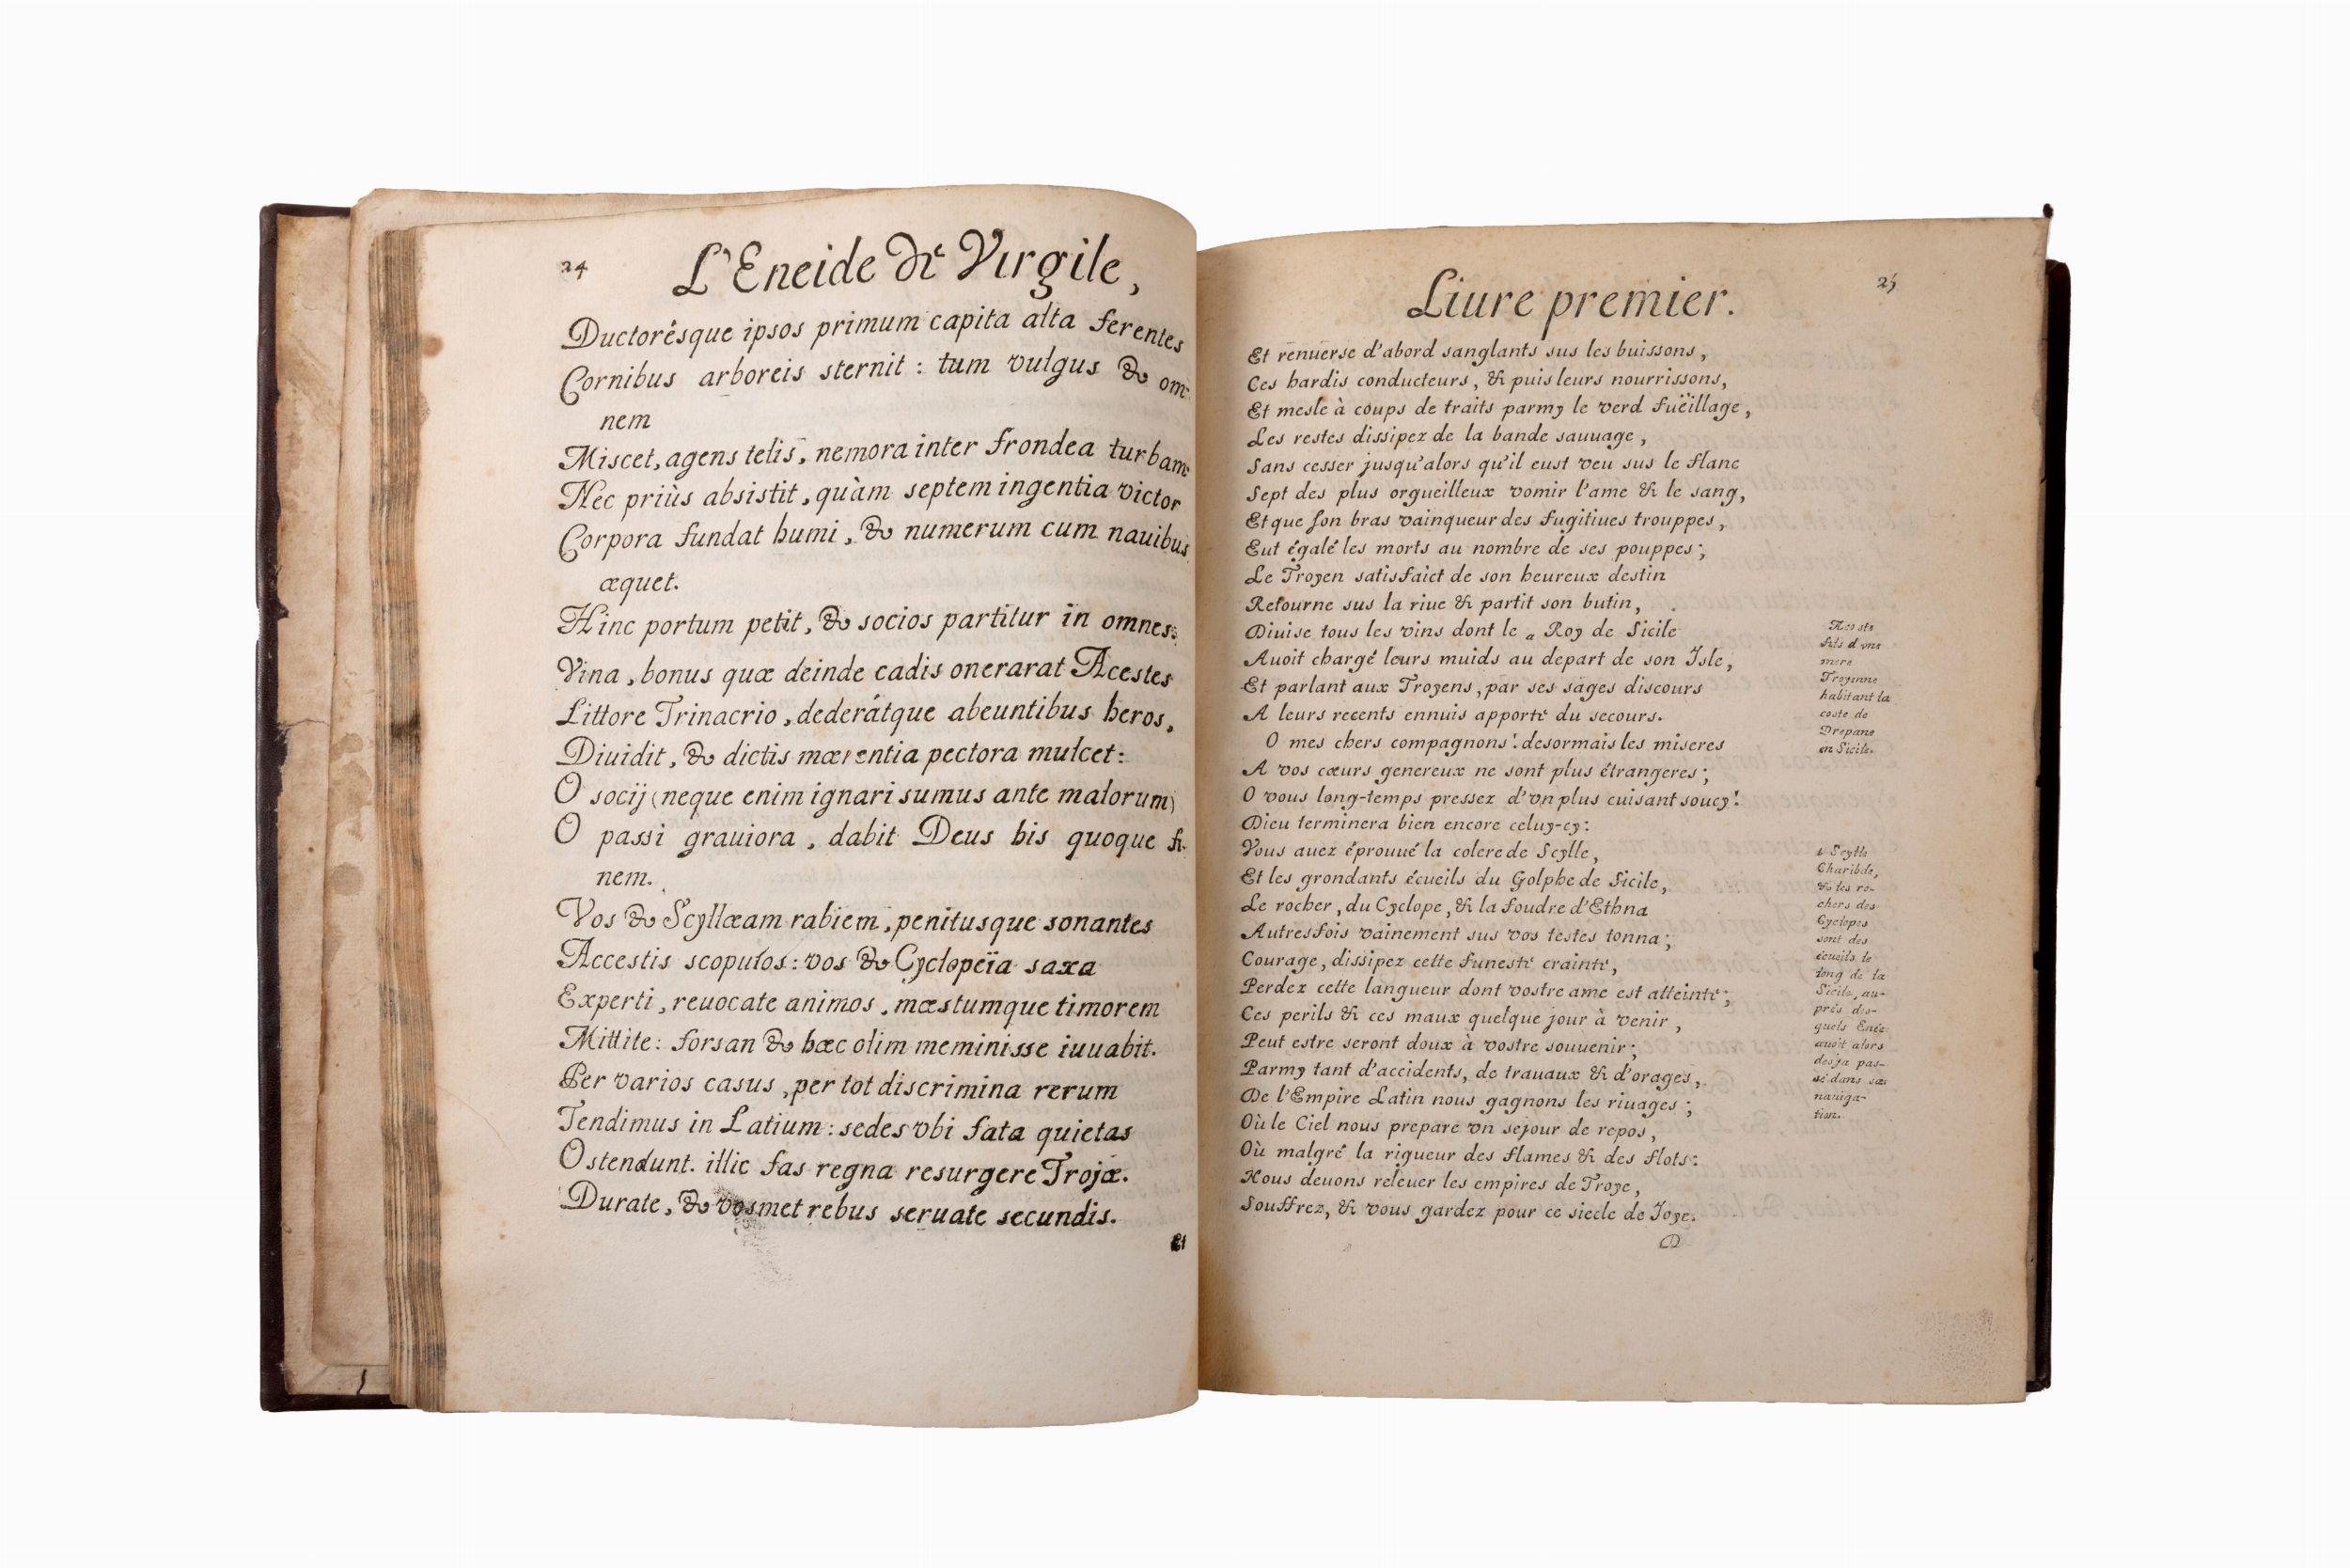 24
L'Eneide de Virgile,
Ductorésque ipsos primum capita alta ferentes
Cornibus arboreis sternit : tum vulgus & om-
nem
Miscet, agens telis, nemora inter frondea turbam.
Nec priùs absistit, quàm septem ingentia victor
Corpora fundat humi, & numerum cum nauibus
æquet.
Hinc portum petit, & socios partitur in omnes:
Vina, bonus quæ deinde cadis onerarat Acestes
Littore Trinacrio, dederátque abeuntibus heros,
Diuidit, & dictis mærentia pectora mulcet:
O socij (neque enim ignari sumus ante malorum)
O passi grauiora, dabit Deus his quoque fi-
nem.
Vos & Scyllæam rabiem, penitusque sonantes
Accestis scopulos: vos & Cyclopeïa saxa
Experti, reuocate animos, mæstumque timorem
Mittite: forsan & hæc olim meminisse iuuabit.
Per varios casus, per tot discrimina rerum
Tendimus in Latium: sedes vbi fata quietas
Ostendunt. illic fas regna resurgere Trojæ.
Durate, & vosmet rebus seruate secundis.
Et
Liure premier.
25
Et renuerse d'abord sanglants sus les buissons,
Ces hardis conducteurs, & puis leurs nourrissons,
Et mesle à coups de traits parmy le verd fuëillage,
Les restes dissipez de la bande sauuage,
Sans cesser jusqu'alors qu'il eust veu sus le flanc
Sept des plus orgueilleux vomir l'ame & le sang,
Et que son bras vainqueur des fugitiues trouppes,
Eut égalé les morts au nombre de ses pouppes;
Le Troyen satisfaict de son heureux destin
Retourne sus la riue & partit son butin,
Diuise tous les vins dont le a Roy de Sicile
Auoit chargé leurs muids au depart de son Isle,
Et parlant aux Troyens, par ses sages discours
A leurs recents ennuis apporte du secours.
O mes chers compagnons! desormais les miseres
A vos cœurs genereux ne sont plus étrangeres;
O vous long-temps pressez d'vn plus cuisant soucy!
Dieu terminera bien encore celuy-cy:
Vous auez éprouué la colere de Scylle,
Et les grondants écueils du Golphe de Sicile,
Le rocher, du Cyclope, & la foudre d'Ethna
Autresfois vainement sus vos testes tonna;
Courage, dissipez cette funeste crainte,
Perdez cette langueur dont vostre ame est atteinte;
Ces perils & ces maux quelque jour à venir,
Peut estre seront doux à vostre souuenir;
Parmy tant d'accidents, de trauaux & d'orages,
De l'Empire Latin nous gagnons les riuages;
Où le Ciel nous prepare vn sejour de repos,
Où malgré la rigueur des flames & des flots:
Nous deuons releuer les empires de Troye,
Souffrez, & vous gardez pour ce siecle de Joye.
D
Aceste
fils d'vne
mere
Troyenne
habitant la
coste de
Drepane
en Sicile.
Scylle
Charibde,
& les ro-
chers des
Cyclopes
sont des
écueils le
long de la
Sicile, au-
prés des-
quels Enée
auoit alors
desja pas-
sé dans sa
nauiga-
tion.